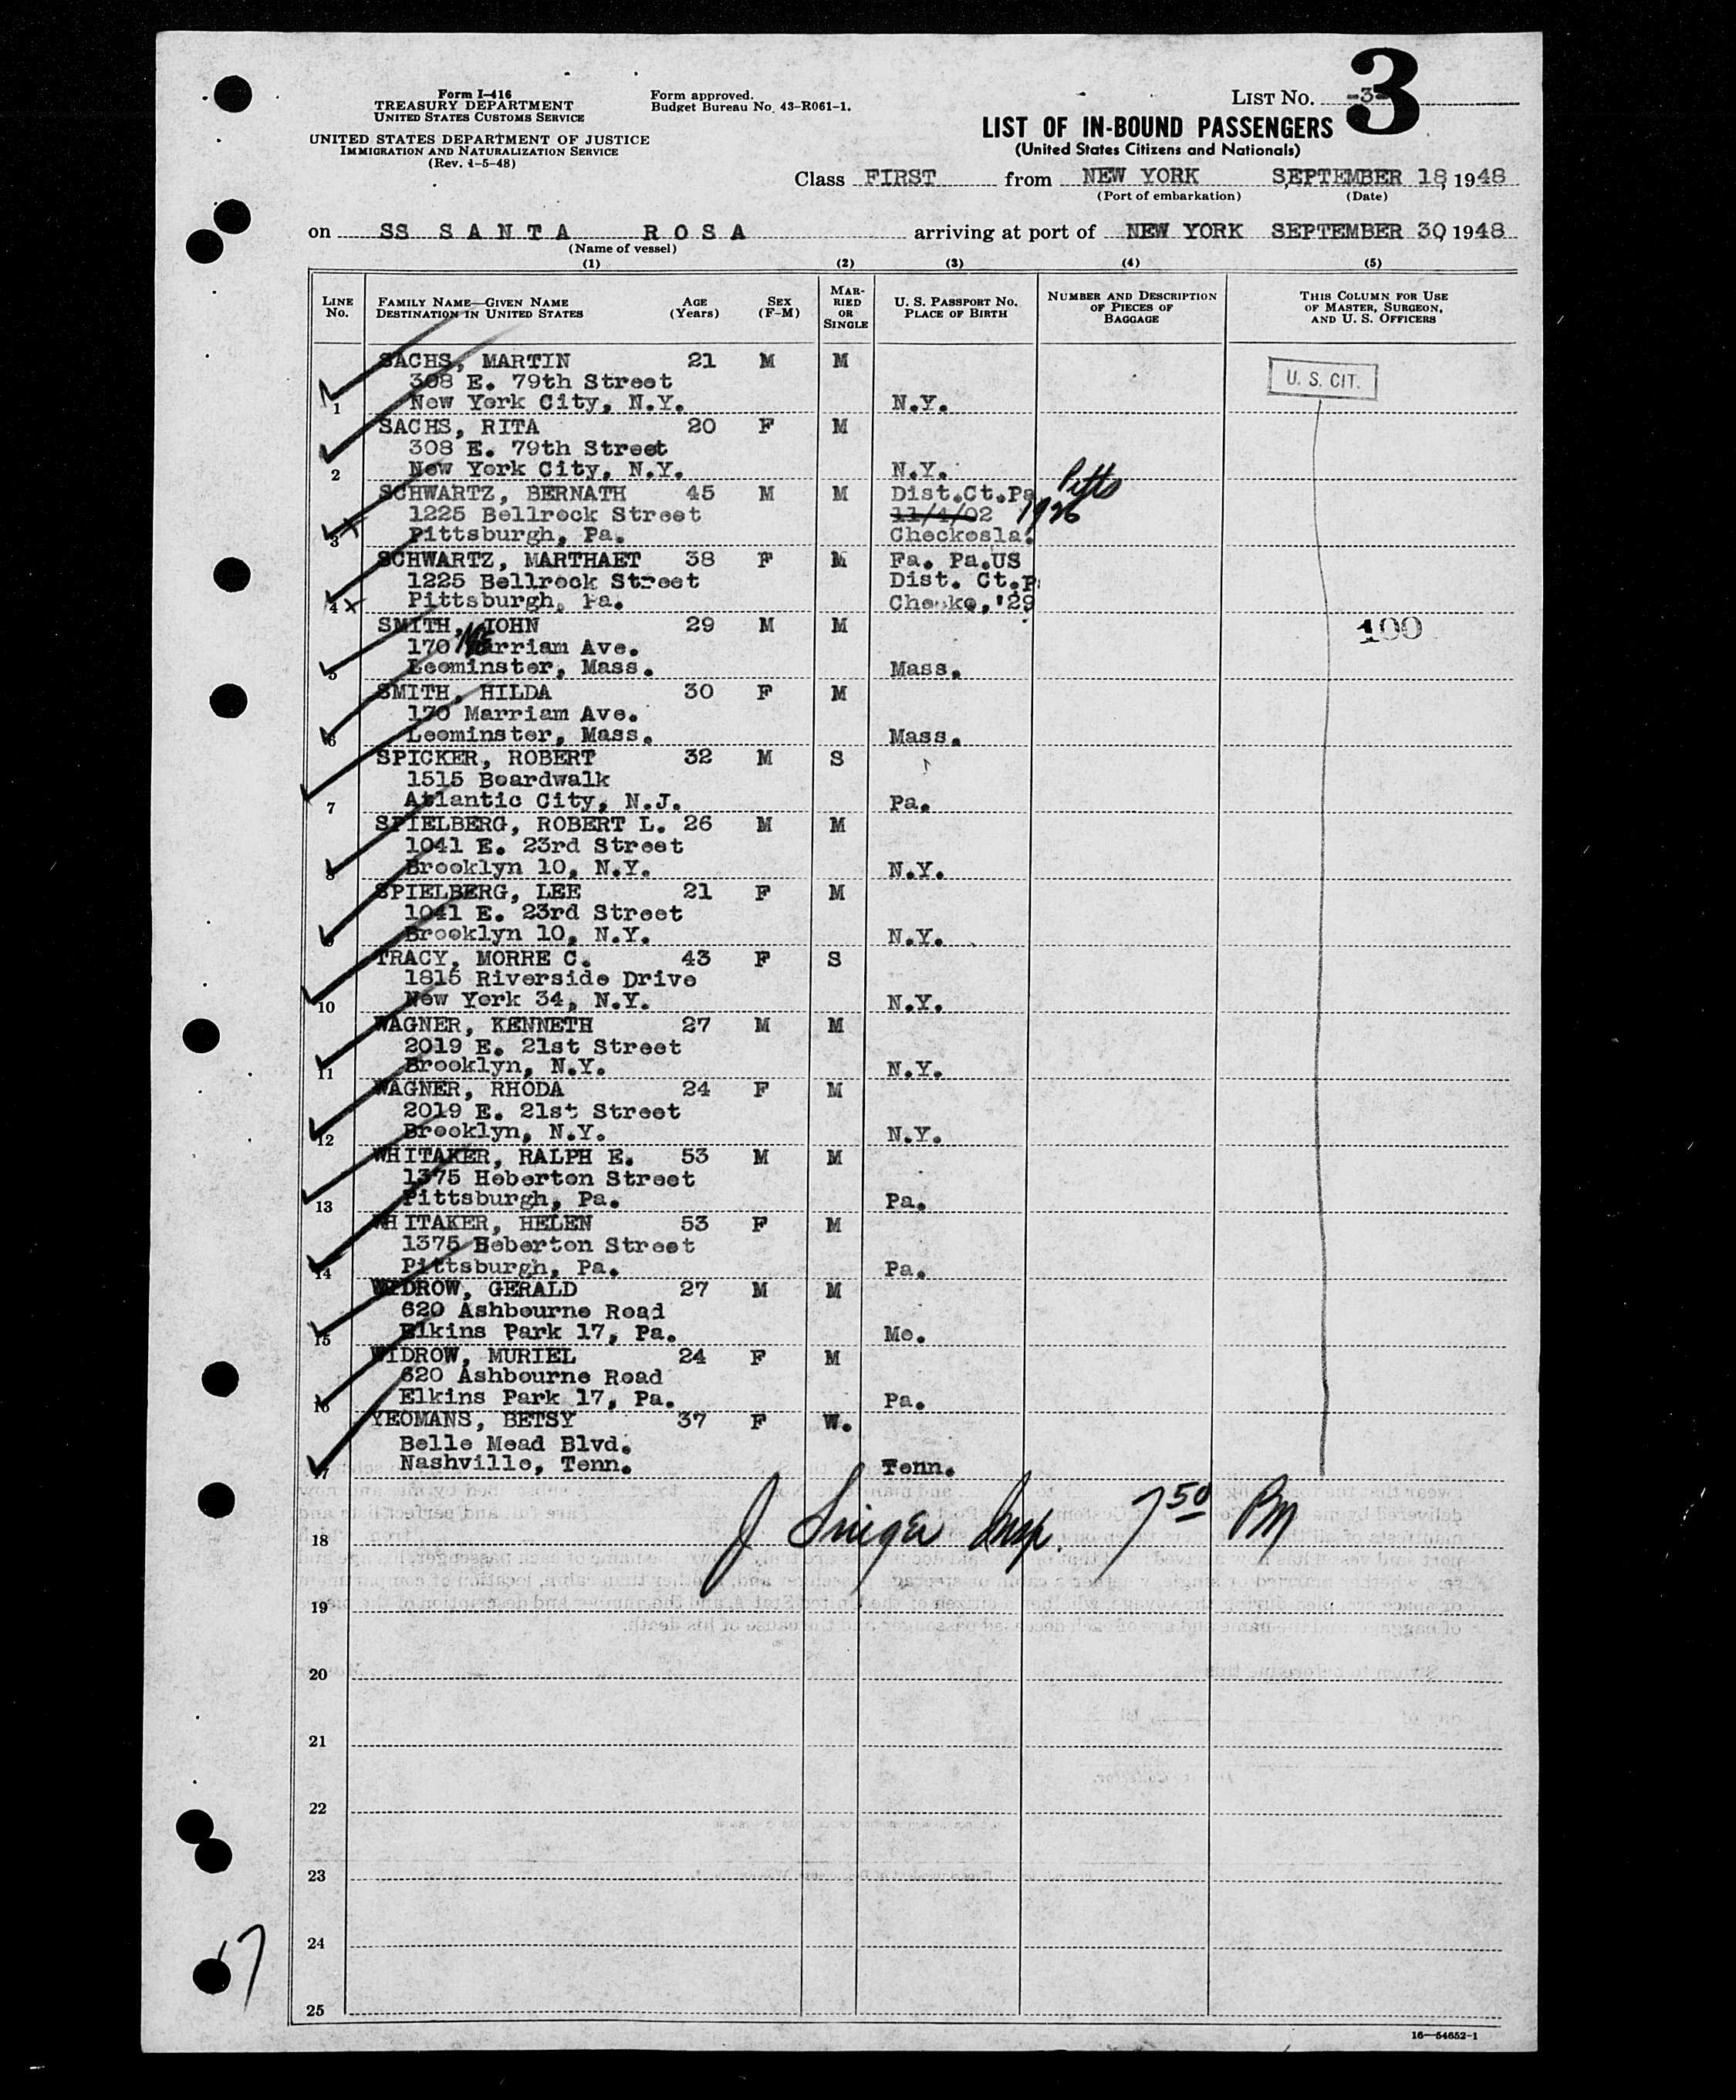 Form I-416
TREASURY DEPARTMENT
UNITED STATES CUSTOMS SERVICE
UNITED STATES DEPARTMENT OF JUSTICE
IMMIGRATION AND NATURALIZATION SERVICE
(Rev. 1-5-48)
Form approved.
Budget Bureau No. 43-R061-1.
LIST NO. -3-
3
LIST OF IN-BOUND PASSENGERS
(United States Citizens and Nationals)
Class FIRST from NEW YORK SEPTEMBER 18, 1948
(Port of embarkation) (Date)
on SS SANTA ROSA arriving at port of NEW YORK SEPTEMBER 30, 1948
(Name of vessel)
(1) (2) (3) (4) (5)
LINE NO.
FAMILY NAME—GIVEN NAME
DESTINATION IN UNITED STATES
AGE (Years)
SEX (F-M)
MARRIED OR SINGLE
U. S. PASSPORT NO.
PLACE OF BIRTH
NUMBER AND DESCRIPTION OF PIECES OF BAGGAGE
THIS COLUMN FOR USE OF MASTER, SURGEON, AND U. S. OFFICERS
SACHS, MARTIN 21 M M
308 E. 79th Street
1 New York City, N.Y. N.Y.
U. S. CIT.
SACHS, RITA 20 F M
308 E. 79th Street
2 New York City, N.Y. N.Y.
SCHWARTZ, BERNATH 45 M M Dist.Ct.Pa Pitts
1225 Bellrock Street 11/4/02 1926
3 Pittsburgh, Pa. Checkosla.
SCHWARTZ, MARTHAET 38 F M Fa. Pa.US
1225 Bellrock Street Dist. Ct.P
4 Pittsburgh, Pa. Checko,'29
SMITH, JOHN 29 M M 100
170 Marriam Ave.
5 Leominster, Mass. Mass.
SMITH, HILDA 30 F M
170 Marriam Ave.
6 Leominster, Mass. Mass.
SPICKER, ROBERT 32 M S
1515 Boardwalk
7 Atlantic City, N.J. Pa.
SPIELBERG, ROBERT L. 26 M M
1041 E. 23rd Street
8 Brooklyn 10, N.Y. N.Y.
SPIELBERG, LEE 21 F M
1041 E. 23rd Street
9 Brooklyn 10, N.Y. N.Y.
TRACY, MORRE C. 43 F S
1815 Riverside Drive
10 New York 34, N.Y. N.Y.
WAGNER, KENNETH 27 M M
2019 E. 21st Street
11 Brooklyn, N.Y. N.Y.
WAGNER, RHODA 24 F M
2019 E. 21st Street
12 Brooklyn, N.Y. N.Y.
WHITAKER, RALPH E. 53 M M
1375 Heberton Street
13 Pittsburgh, Pa. Pa.
WHITAKER, HELEN 53 F M
1375 Heberton Street
14 Pittsburgh, Pa. Pa.
WIDROW, GERALD 27 M M
620 Ashbourne Road
15 Elkins Park 17, Pa. Mo.
WIDROW, MURIEL 24 F M
620 Ashbourne Road
16 Elkins Park 17, Pa. Pa.
YEOMANS, BETSY 37 F W.
Belle Mead Blvd.
17 Nashville, Tenn. Tenn.
J Singer Insp. 7 50 PM
18
19
20
21
22
23
24
25
17
16—54652-1